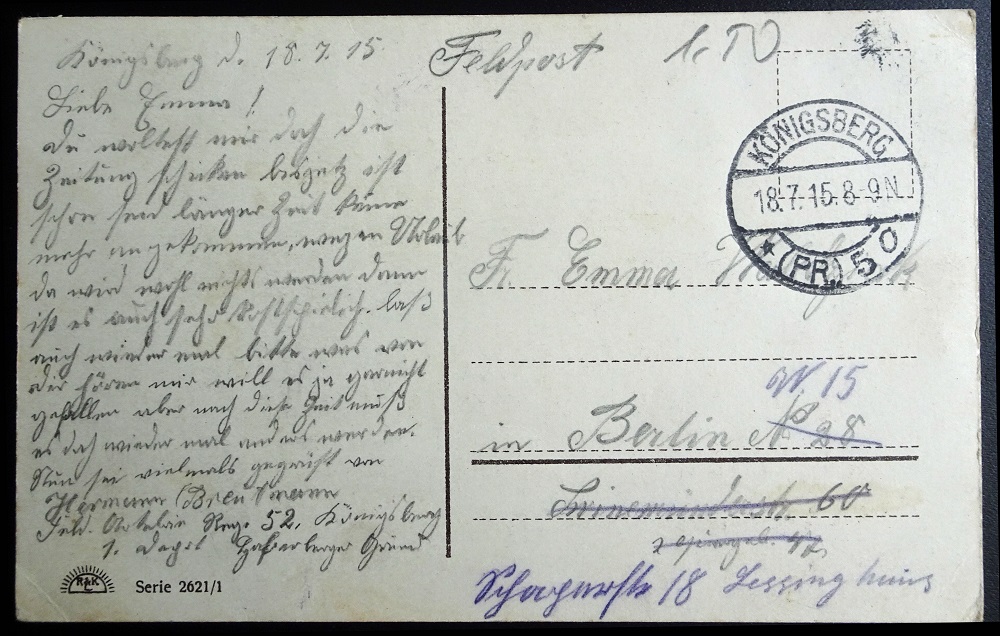 Königsberg d. 18.7.15
Liebe Emma!
du woltest mir doch die
Zeitung schicken bis jetz ist
schon seid länger Zeit keine
mehr angekommen, wegen Urlaub
da wird wohl nichts werden dann
ist es auch sehr kostspielich. laß
auch wieder mal bitte was von
dir hören mir will es ja garnicht
gefallen aber nach diese Zeit muß
es doch wieder mal anders werden.
Nun sei vielmals gegrüßt von
Hermann
Feld. Artelrie Reg. 52. Königsberg
1. Haberberger Grund
R&K
L
Serie 2621/1
Feldpost
KÖNIGSBERG
18.7.15.8-9N.
* (PR.) 5 c
Fr. Emma
W. 15
in Berlin No 28
Swinemünderstr 60
Schaperstr 18 Lessinghaus